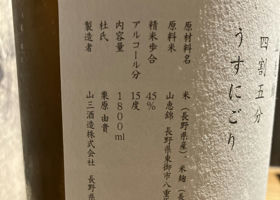 四割五分
うすにごり
原材料名 米（長野県産）、米麹（長
原料米 山恵錦 長野県東御市八重
精米歩合 45％
アルコール分 15度
内容量 1800ml
杜氏 栗原由貴
製造者 山三酒造株式会社 長野県